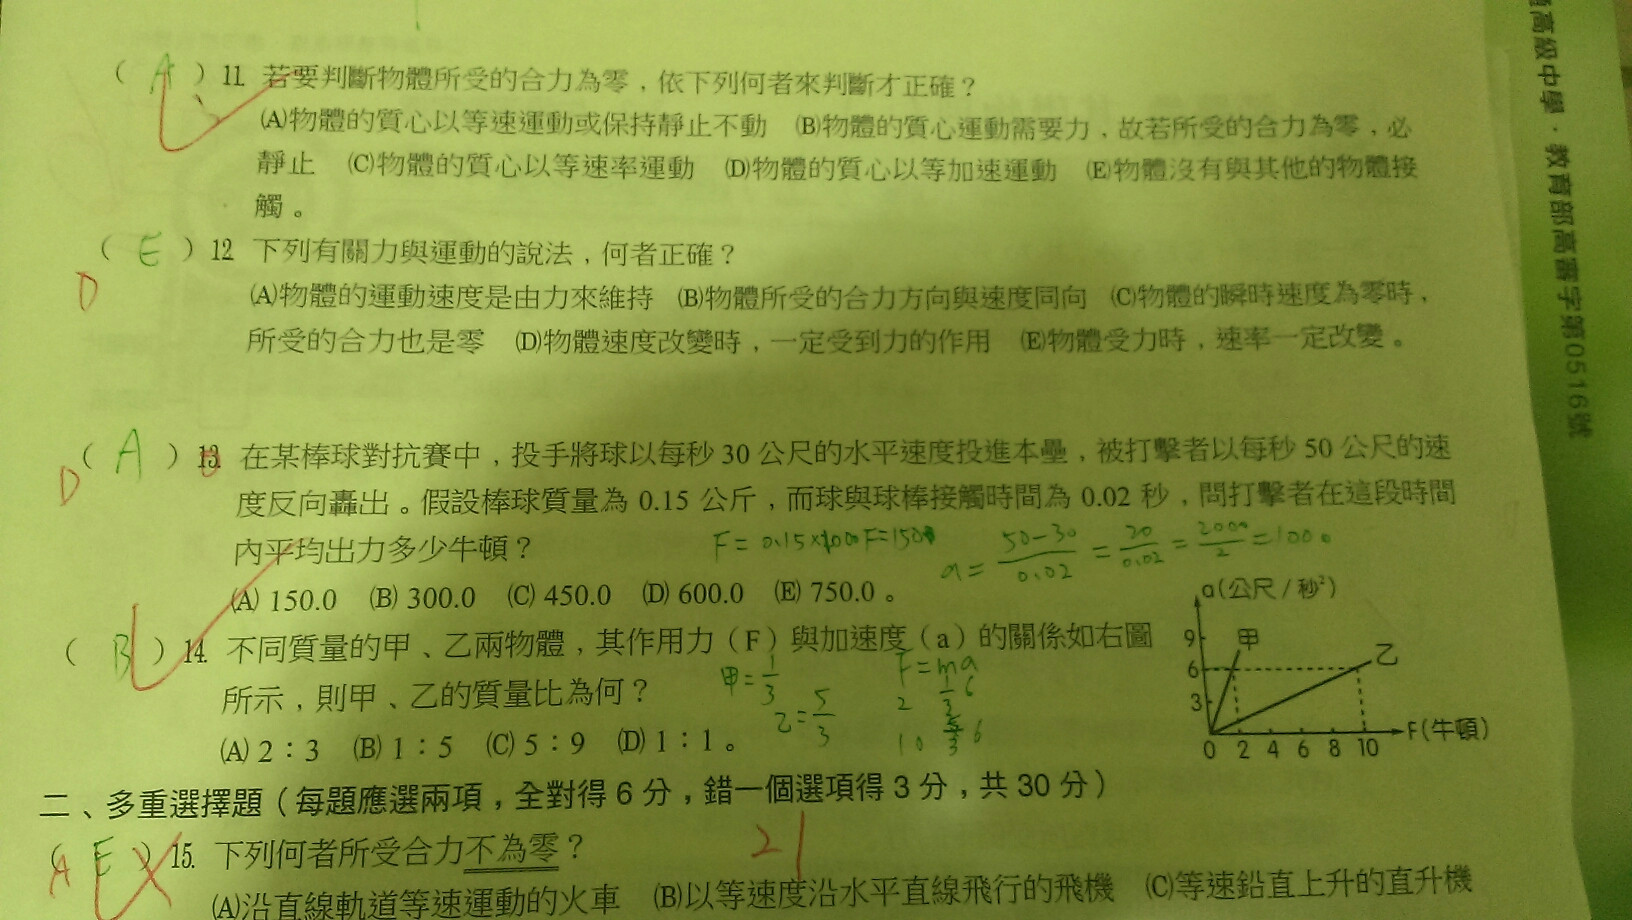 (A) 11. 若要判斷物體所受的合力為零，依下列何者來判斷才正確？
(A)物體的質心以等速運動或保持靜止不動 (B)物體的質心運動需要力，故若所受的合力為零，必
靜止 (C)物體的質心以等速率運動 (D)物體的質心以等加速運動 (E)物體沒有與其他的物體接
觸。
(E) 12. 下列有關力與運動的說法，何者正確？
D
(A)物體的運動速度是由力來維持 (B)物體所受的合力方向與速度同向 (C)物體的瞬時速度為零時，
所受的合力也是零 (D)物體速度改變時，一定受到力的作用 (E)物體受力時，速率一定改變。
(A) 13. 在某棒球對抗賽中，投手將球以每秒 30 公尺的水平速度投進本壘，被打擊者以每秒 50 公尺的速
D
度反向轟出。假設棒球質量為 0.15 公斤，而球與球棒接觸時間為 0.02 秒，問打擊者在這段時間
內平均出力多少牛頓？
F = 0.15×1000 F=150
a = 50-30/0.02 = 20/0.02 = 2000/2 = 1000
(A) 150.0 (B) 300.0 (C) 450.0 (D) 600.0 (E) 750.0。
(B) 14. 不同質量的甲、乙兩物體，其作用力（F）與加速度（a）的關係如右圖
所示，則甲、乙的質量比為何？
甲 = 1/3
乙 = 5/3
F = ma
2 1/3 6
10 5/3 6
(A) 2：3 (B) 1：5 (C) 5：9 (D) 1：1。
a(公尺/秒²)
9
甲
乙
6
3
0 2 4 6 8 10
F(牛頓)
二、多重選擇題（每題應選兩項，全對得 6 分，錯一個選項得 3 分，共 30 分）
21
(A E) 15. 下列何者所受合力不為零？
(A)沿直線軌道等速運動的火車 (B)以等速度沿水平直線飛行的飛機 (C)等速鉛直上升的直升機
高級中學．教育部高審字第0516號